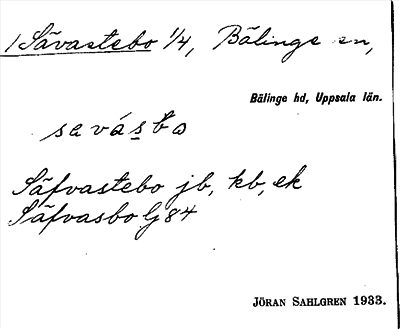 1 Sävastebo 1/4, Bälinge sn,
Bälinge hd, Uppsala län.
savásbo
Säfvastebo jb, kb, ek
Säfvasbo G 84
JÖRAN SAHLGREN 1933.